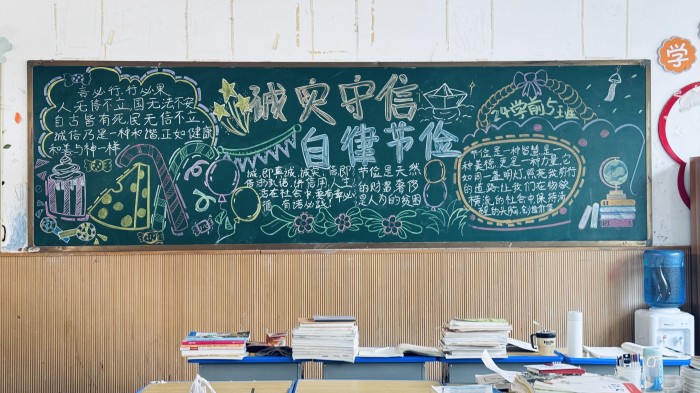 言必行,行必果
人无信不立,国无法不安
自古皆有死,民无信不立
诚信乃是一种和谐,正如健康
和善与神一样
诚实守信
自律节俭
24学前5班
诚,即真诚,诚实;信,即
人生
活在社会中,要有幸必
须有诺必践!
节俭是天然
的财富奢侈
是人为的贫困
节俭是一种智慧,是一
种美德,更是一种力量,它
如同一盏明灯,照亮我前行
的道路,让我们在物欲
横流的社会中,保持清
醒的头脑,
学